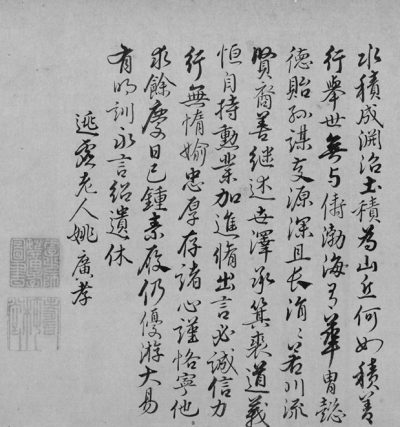 水積成淵治土積為山丘何如積善
行舉世無与儔渤海有華胄懿
德貽孫謀支源深且長涓々若川流
賢裔善继述世澤承箕裘道義
恒自持勲業加進脩出言必誠信力
行無惰媮忠厚存諸心謹恪寧他
求餘慶日已鍾素履仍優游大易
有明訓永言紹遺休
逃虛老人姚廣孝